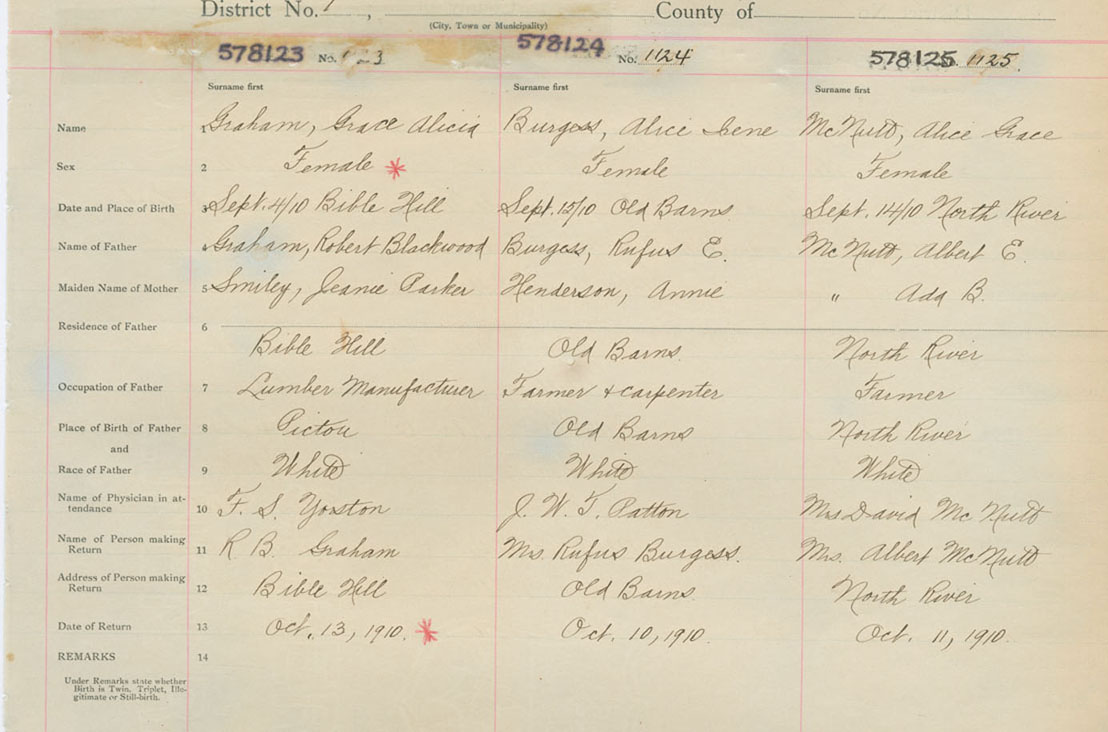 District No. County of
(City, Town or Municipality)
578123 No. 1123 578124 No. 1124 578125 No. 1125
Surname first Surname first Surname first
Name 1 Graham, Grace Alicia Burgess, Alice Irene McNutt, Alice Grace
Sex 2 Female * Female Female
Date and Place of Birth 3 Sept. 4/10 Bible Hill Sept. 15/10 Old Barns Sept. 14/10 North River
Name of Father 4 Graham, Robert Blackwood Burgess, Rufus E. McNutt, Albert E.
Maiden Name of Mother 5 Smiley, Jeanie Parker Henderson, Annie " Ada B.
Residence of Father 6
Bible Hill Old Barns. North River
Occupation of Father 7 Lumber Manufacturer Farmer + carpenter Farmer
Place of Birth of Father 8 Pictou Old Barns North River
and
Race of Father 9 White White White
Name of Physician in at-
tendance 10 F. S. Yorston J. W. T. Patton Mrs David McNutt
Name of Person making
Return 11 R. B. Graham Mrs. Rufus Burgess. Mrs. Albert McNutt
Address of Person making
Return 12 Bible Hill Old Barns. North River
Date of Return 13 Oct. 13, 1910. * Oct. 10, 1910. Oct. 11, 1910.
REMARKS 14
Under Remarks state whether
Birth is Twin, Triplet, Ille-
gitimate or Still-birth.